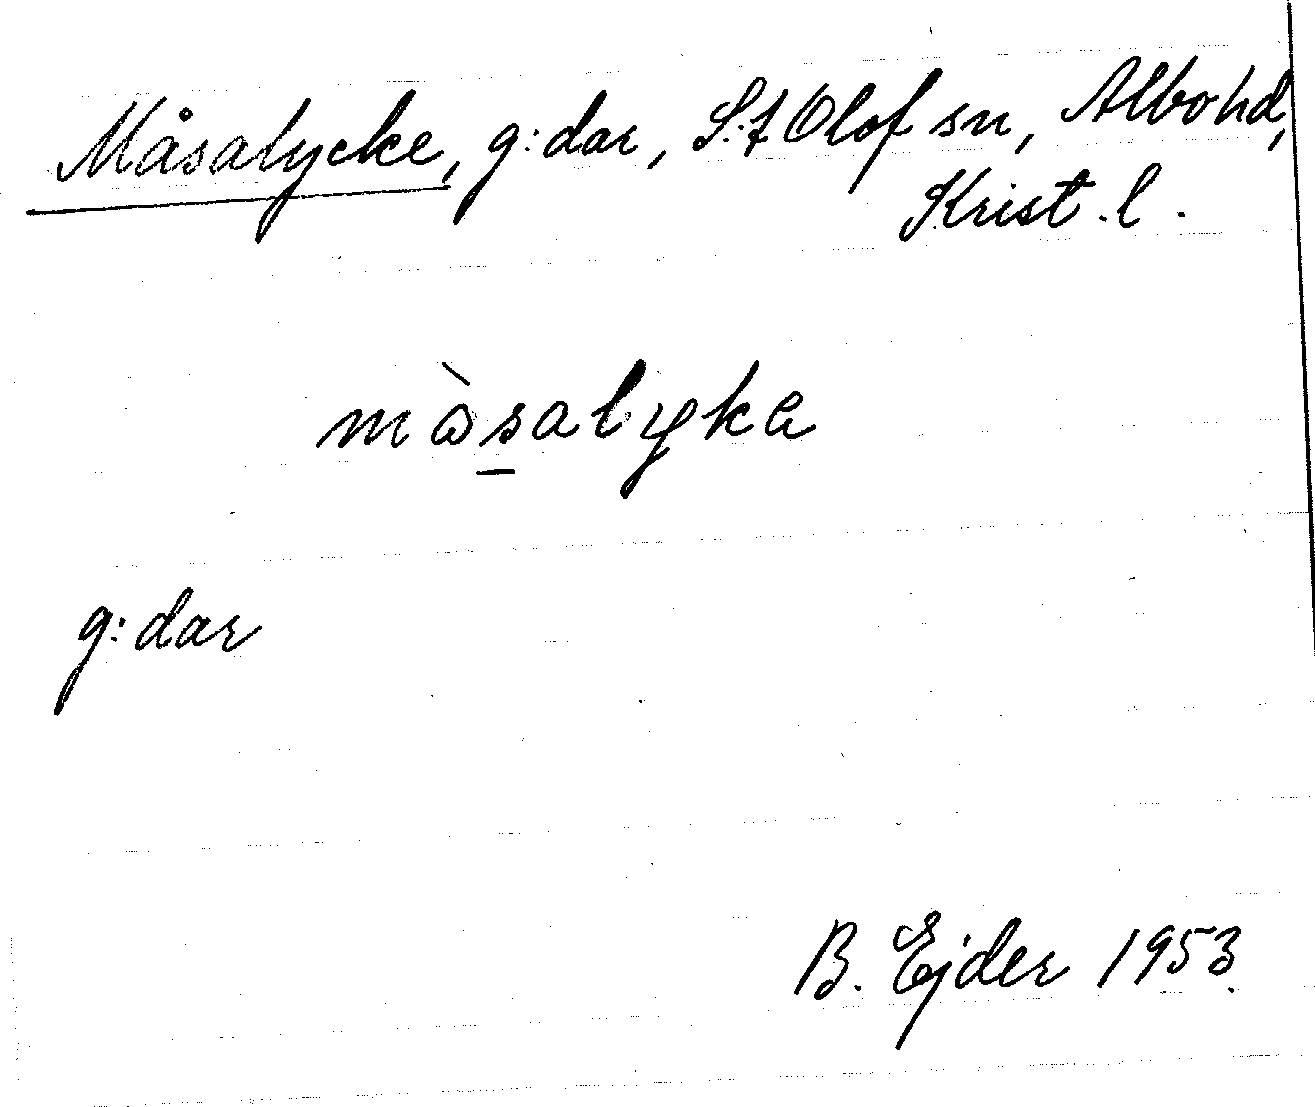 Måsalycke, g:dar, S:t Olof sn, Albo hd,
Krist. l.
mòsalyka
g:dar
B. Ejder 1953.